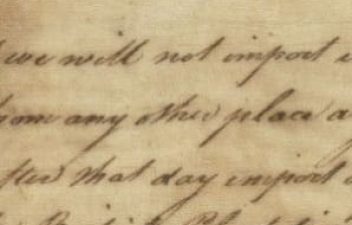 we will not import
from any other place
after that day import